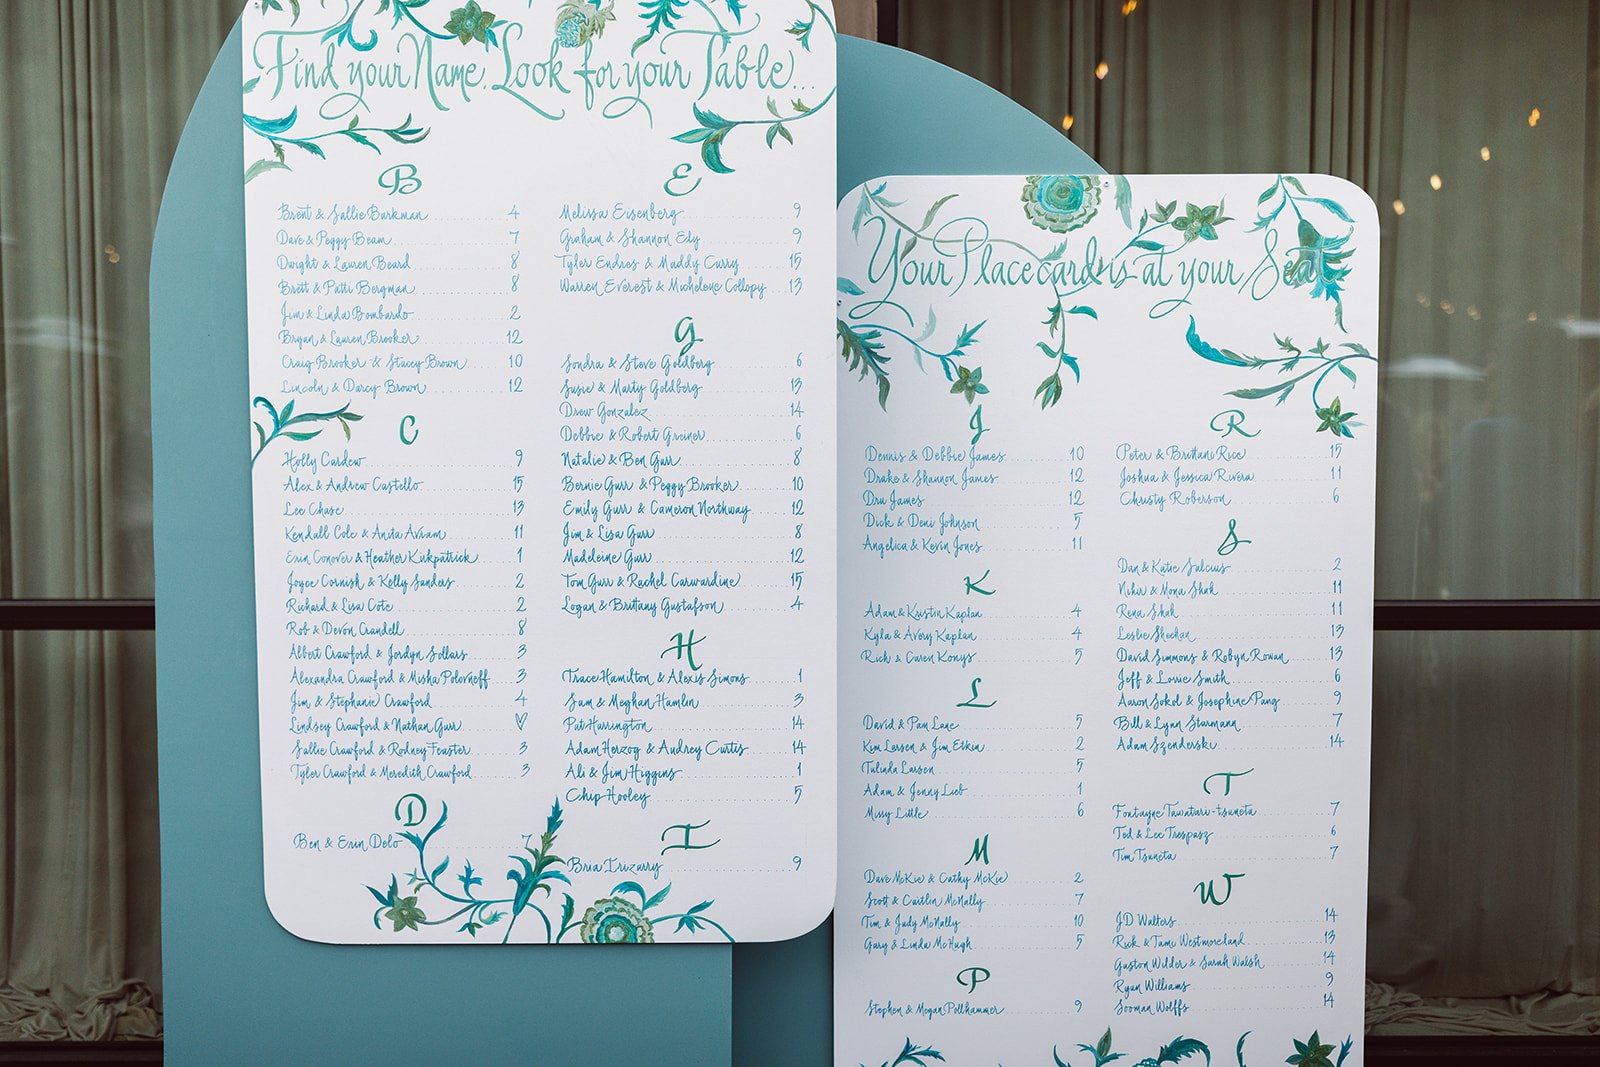 Find your Name. Look for your Table...
B
Brent & Sallie Barkman 4
Dave & Peggy Beam 7
Dwight & Lauren Beard 8
Brett & Patti Bergman 8
Jim & Linda Bombardo 2
Bryan & Lauren Brooker 12
Craig Brooker & Stacey Brown 10
Lincoln & Darcy Brown 12
C
Holly Cardew 9
Alex & Andrew Castello 15
Lee Chase 13
Kendall Cole & Anita Avram 11
Erin Conover & Heather Kirkpatrick 1
Joyce Cornish & Kelly Sanders 2
Richard & Lisa Cote 2
Rob & Devon Crandell 8
Albert Crawford & Jordyn Sollars 3
Alexandra Crawford & Misha Polovneff 3
Jim & Stephanie Crawford 4
Lindsey Crawford & Nathan Gurr ♡
Sallie Crawford & Rodney Feaster 3
Tyler Crawford & Meredith Crawford 3
D
Ben & Erin Delo 7
E
Melissa Eisenberg 9
Graham & Shannon Ely 9
Tyler Endres & Maddy Curry 15
Warren Everest & Michelene Collopy 13
G
Sondra & Steve Goldberg 6
Susie & Marty Goldberg 13
Drew Gonzalez 14
Debbie & Robert Greiner 6
Natalie & Ben Gurr 8
Bernie Gurr & Peggy Brooker 10
Emily Gurr & Cameron Northway 12
Jim & Lisa Gurr 8
Madeleine Gurr 12
Tom Gurr & Rachel Carwardine 15
Logan & Brittany Gustafson 4
H
Trace Hamilton & Alexis Simons 1
Sam & Meghan Hamlin 3
Pat Harrington 14
Adam Herzog & Audrey Curtis 14
Ali & Jim Higgins 1
Chip Hooley 5
I
Bria Irizarry 9
Your Placecard is at your Seat
J
Dennis & Debbie James 10
Drake & Shannon James 12
Dru James 12
Dick & Deni Johnson 5
Angelica & Kevin Jones 11
K
Adam & Kristin Kaplan 4
Kyla & Avery Kaplan 4
Rich & Caren Konys 5
L
David & Pam Lane 5
Kim Larsen & Jim Etkin 2
Tulinda Larsen 5
Adam & Jenny Lieb 1
Missy Little 6
M
Dave McKie & Cathy McKie 2
Scott & Caitlin McNally 7
Tim & Judy McNally 10
Gary & Linda McHugh 5
P
Stephen & Megan Pollhammer 9
R
Peter & Brittani Rice 15
Joshua & Jessica Rivera 11
Christy Roberson 6
S
Dan & Katie Salcius 2
Nihir & Mona Shah 11
Rena Shah 11
Leslie Sheehan 13
David Simmons & Robyn Rowan 13
Jeff & Lorrie Smith 6
Aaron Sokol & Josephine Pang 9
Bill & Lynn Starmann 7
Adam Szenderski 14
T
Fontayne Tawatari-Tsuneta 7
Ted & Lee Trespasz 6
Tim Tsuneta 7
W
JD Walters 14
Rick & Tami Westmoreland 13
Gaston Wilder & Sarah Walsh 14
Ryan Williams 9
Sooman Wolffs 14